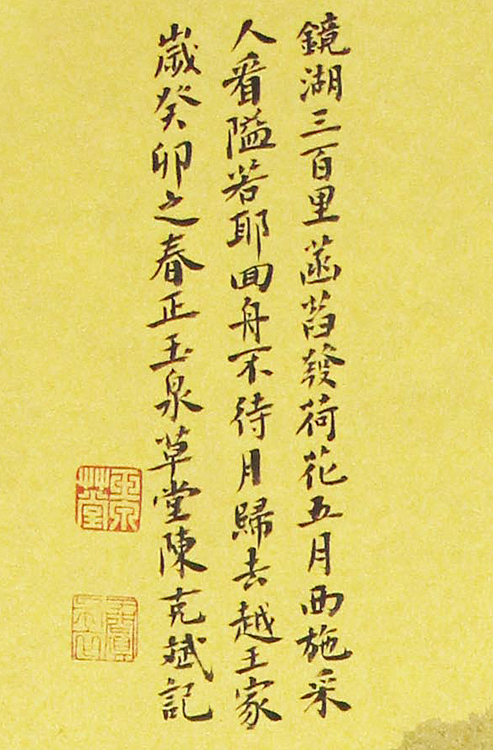 鏡湖三百里菡萏發荷花五月西施采
人看隘若耶回舟不待月歸去越王家
歲癸卯之春正玉泉草堂陳克斌記